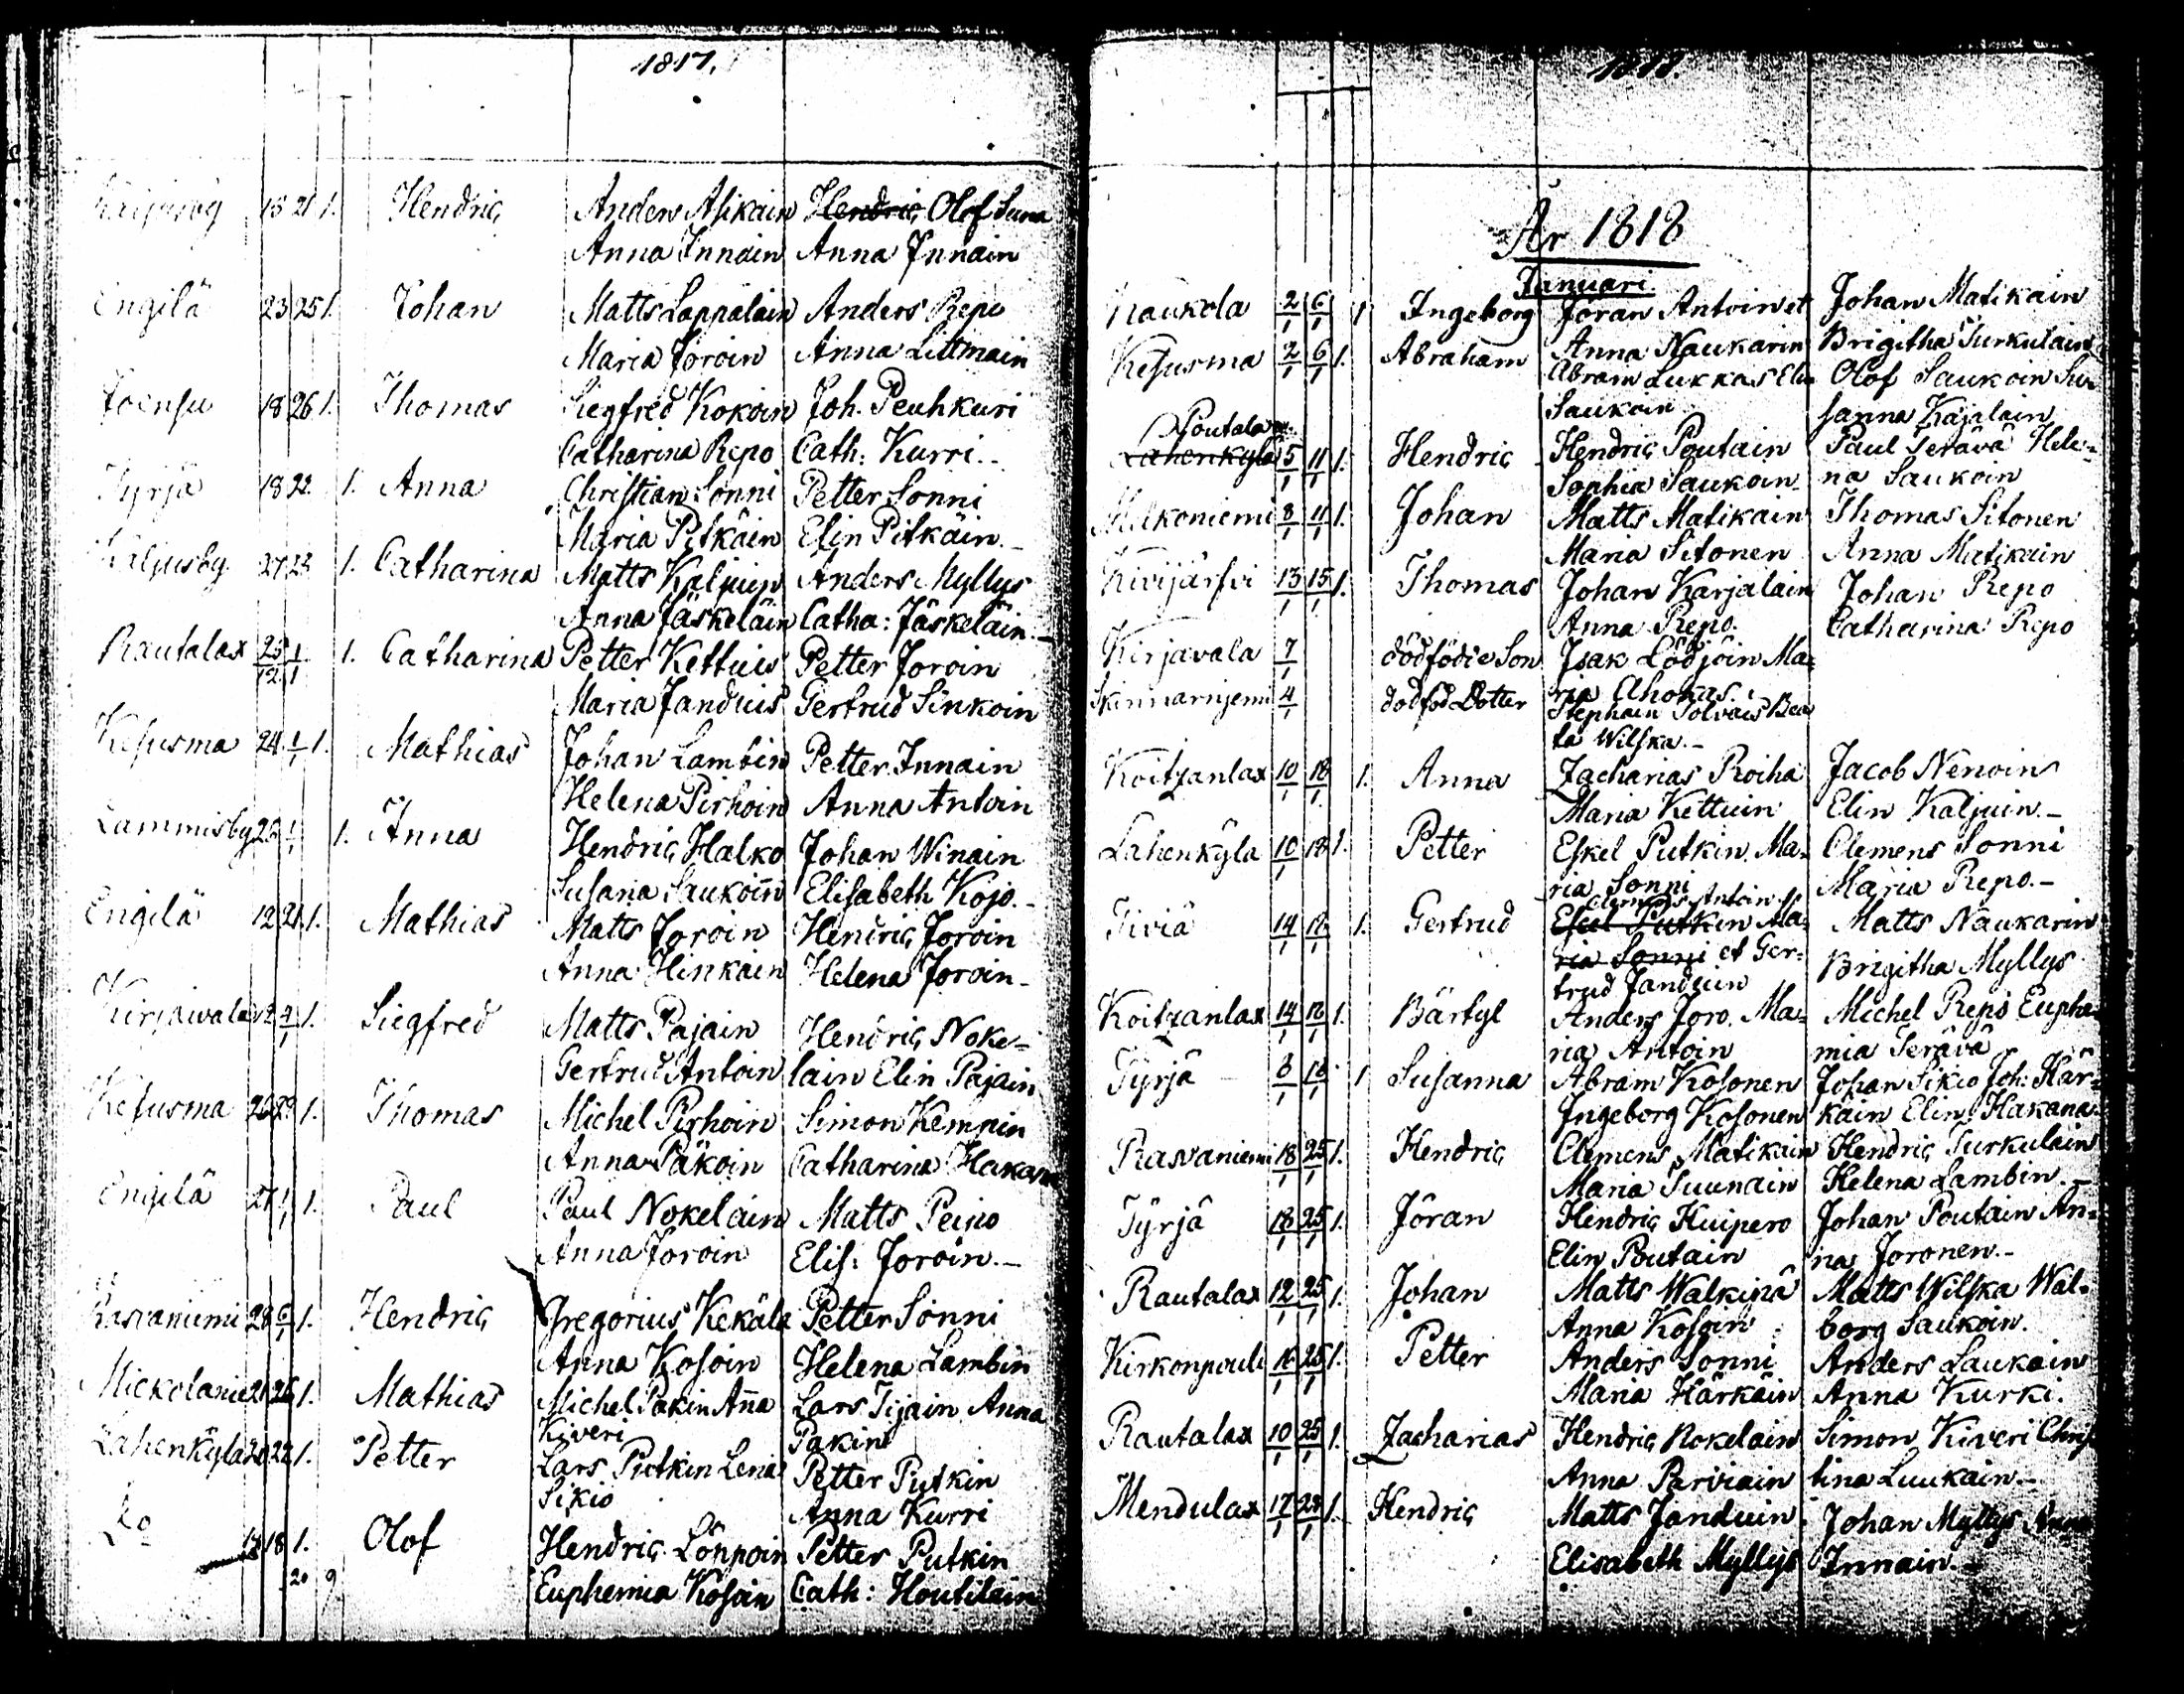 1817.
Kaljusby 15 21 1. Hendric Anders Asikain Hendric Olof Suna
Anna Innain Anna Innain
Engilä 23 25 1. Johan Matts Lappalain Anders Repo
Maria Joroin Anna Littmain
Joensu 18 26 1. Thomas Siegfred Kokoin Joh. Peuhkuri
Catharina Repo Cath: Kurri.
Tyrjä 18 22. 1. Anna Christian Sonni Petter Sonni
Maria Pitkäin Elin Pitkäin.
Kaljusby 27 28 1. Catharina Matts Kaljuin Anders Myllys
Anna Jäskeläin Catha: Jäskeläin.
Rautalax 23/12 1/1 1. Catharina Petter Kettuis Petter Joroin
Maria Janduis Gertrud Sinkoin
Kesusma 24 1/1 1. Mathias Johan Lambin Petter Innain
Helena Pirhoin Anna Antoin
Lammisby 1/1 1. Anna Hendric Halko Johan Winain
Susana Saukoin Elisabeth Kojo.
Engilä 12 21 1. Mathias Matts Joroin Henric Joroin
Anna Hinkain Helena Joroin
Kirjawala 4/1 1. Siegfred Matts Pajain Hendric Noke=
Gertrud Antoin lain Elin Pajain
Kesusma 26 29 1. Thomas Michel Pirhoin Simon Kemnin
Anna Päkoin Catharina Hakana
Engilä 27 1/1 1. Paul Paul Nokelain Matts Peipo
Anna Joroin Elis: Joroin.
Rasvaniemi 28 6/1 1. Hendric Gregorius Kekäla Petter Sonni
Anna Kosoin Helena Lambin
Mickolanie 21 26 1. Mathias Michel Pakin Anna Lars Tijain Anna
Kiveri Pakin
Lahenkyla 20 22 1. Petter Lars Putkin Lena Petter Putkin
Sikio Anna Kurri
Do 17 18 1. Olof Hendric Lönnoin Petter Putkin
20 9 Euphemia Kosoin Cath: Houtilain
1818.
År 1818
Januari
Naukola 2/1 6/1 1 Ingeborg Jöran Antoin et Johan Matikain
Anna Naukarin Brigitha Turkulain
Kesusma 2/1 6/1 1. Abraham Abram Lukkas Elin Olof Saukoin Su=
Saukoin sanna Kajalain
Poutala
Lahenkyla 5/1 11/1 1. Hendric Hendric Poutain Paul Terävä Hele=
Sophia Saukoin na Saukoin
Melkoniemi 8/1 11/1 1. Johan Matts Matikain Thomas Sitonen
Maria Sitonen Anna Matikain
Kivijärfvi 13/1 15/1 1. Thomas Johan Karjalain Johan Repo
Anna Repo. Catharina Repo
Kirjavala 7/1 dödfödde Son Isak Lödjöin Ma=
ria Ahokas.
Skinnarniemi 4/1 dödföd Dotter Stephan Tolvais Bea
ta Wilska.
Koitzanlax 10/1 18/1 1. Anna Zacharias Roiha Jacob Nenoin
Maria Kettuin Elin Kaljuin.
Lahenkyla 10/1 18 1. Petter Eskel Putkin Ma= Clemens Sonni
ria Sonni Maria Repo.
Clemens Antoin
Tiviä 14/1 18/1 1. Gertrud Eskel Putkin Ma= Matts Naukarin
ria Sonni et Ger= Brigitha Myllys
trud Janduin
Koitzanlax 14/1 18/1 1. Bärtyl Anders Joro. Ma= Michel Repo Euphe=
ria Antoin mia Terävä
Tyrjä 8/1 18/1 1 Susanna Abram Kosonen Johan Sikio Joh: Kär=
Ingeborg Kosonen käin Elin Hakana
Rasvaniemi 18/1 25/1 1. Hendric Clemens Matikain Hendric Turkulain
Maria Suunain Helena Lambin.
Tyrjä 18/1 25/1 1. Jöran Hindric Kuipero Johan Poutain An=
Elin Poutain na Joronen.
Rautalax 12/1 25/1 1. Johan Matts Walkinä Matts Wilska Wal=
Anna Kosoin borg Saukoin.
Kirkonpouli 16/1 25/1 1. Petter Anders Sonni Anders Laukain
Maria Härkäin Anna Kurki.
Rautalax 10/1 25/1 1. Zacharias Hendric Nokelain Simon Kiveri Chris
Anna Parviain tina Luukain.
Mendulax 17/1 28/1 1. Hendric Matts Janduin Johan Myllys Anna
Elisabeth Myllys Innain.